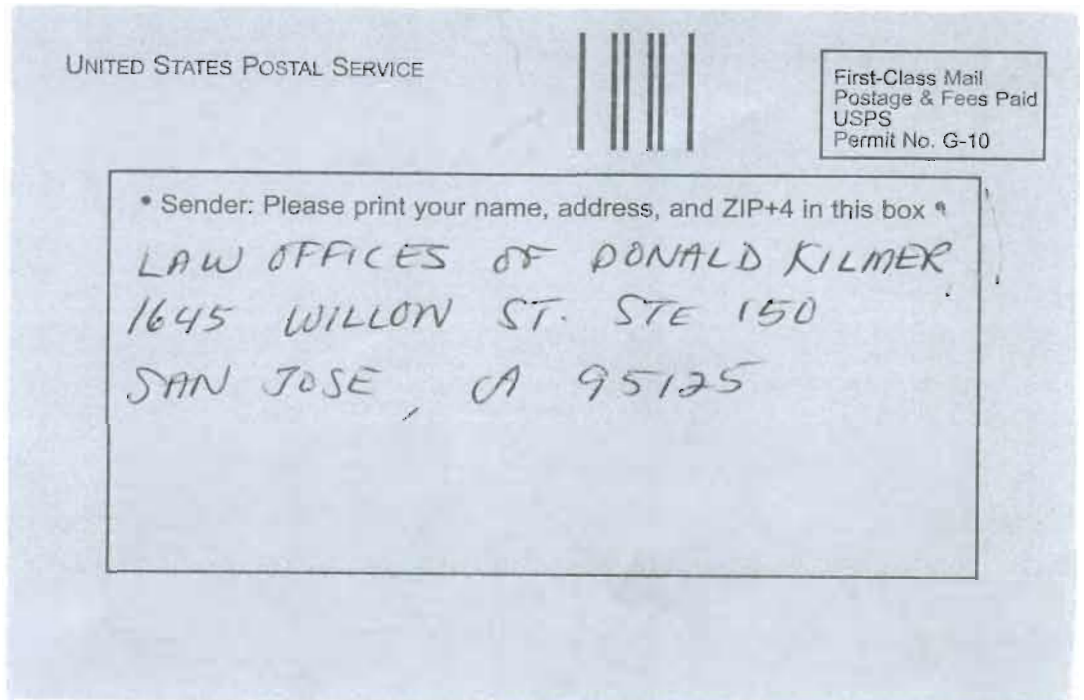 UNITED STATES POSTAL SERVICE
First-Class Mail
Postage & Fees Paid
USPS
Permit No. G-10
• Sender: Please print your name, address, and ZIP+4 in this box •
LAW OFFICES OF DONALD KILMER
1645 WILLOW ST. STE 150
SAN JOSE, CA 95125